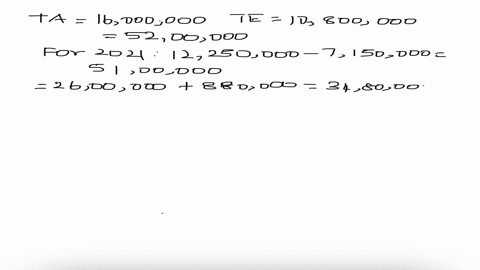 TA = 16,000,000 TE = 10,800,000
= 52,00,000
For 2021 : 12,250,000 - 7,150,000 =
51,00,000
= 26,00,000 + 880,000 = 34,80,00